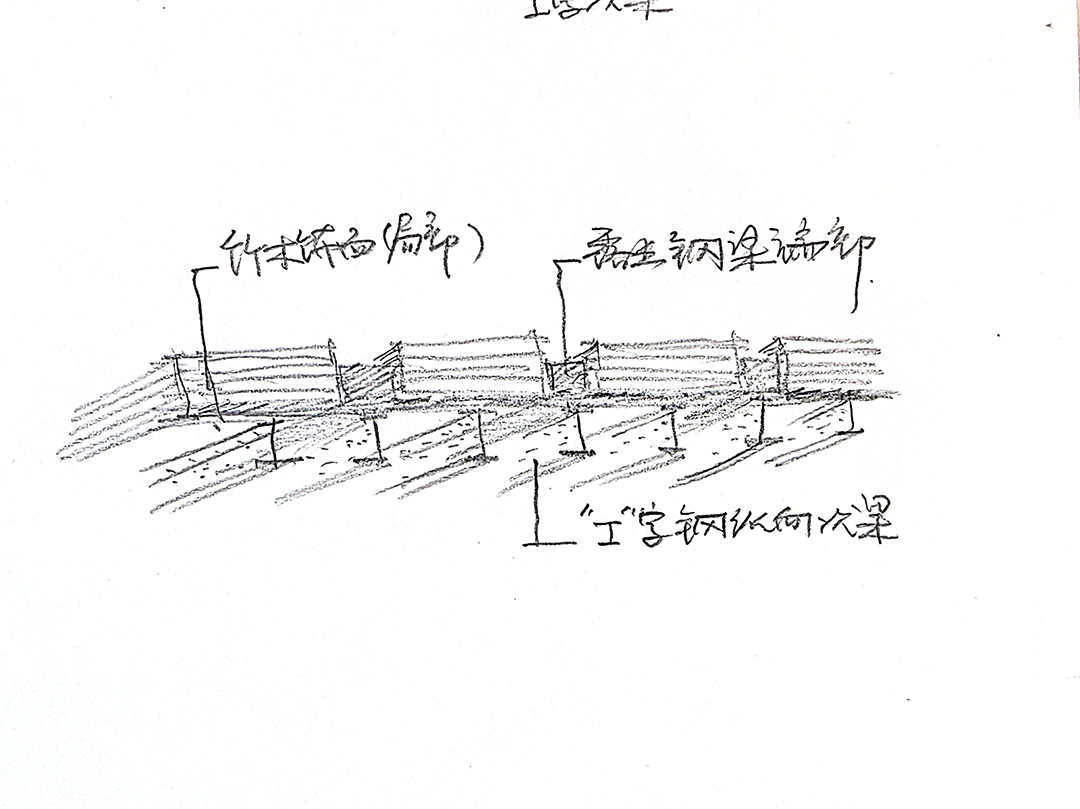 竹木饰面(局部)
露出钢梁端部
“工”字钢纵向次梁